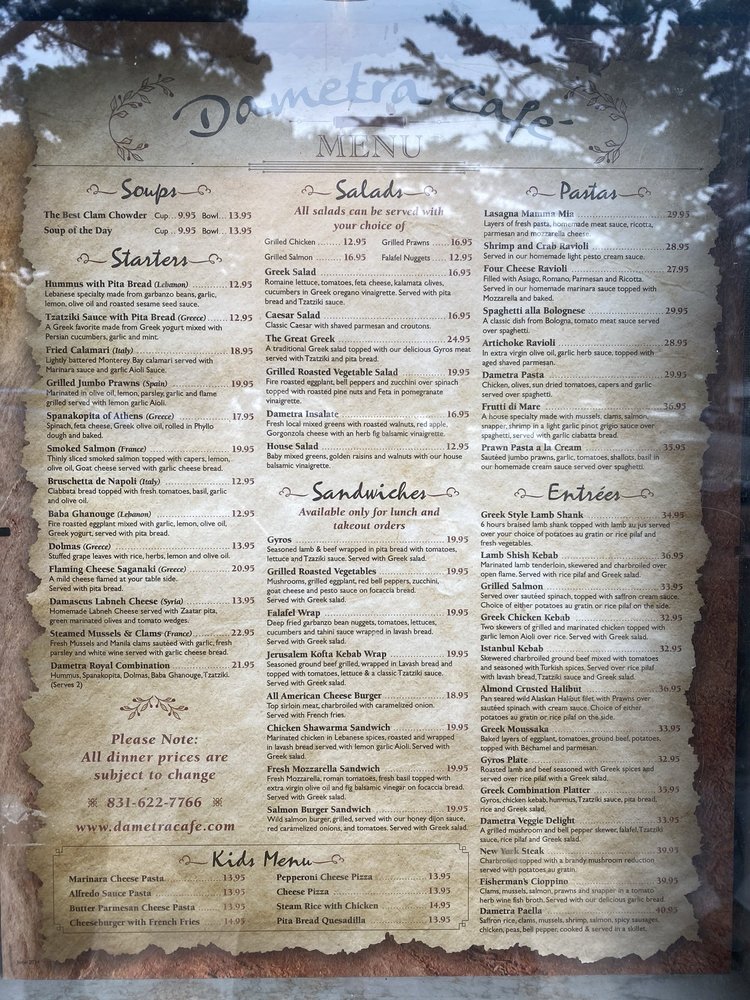 Dametra Cafe
MENU
Soups
The Best Clam Chowder Cup .. 9.95 Bowl... 13.95
Soup of the Day Cup .. 9.95 Bowl.. 13.95
Starters
Hummus with Pita Bread (Lebanon) 12.95
Lebanese specialty made from garbanzo beans, garlic,
lemon, olive oil and roasted sesame seed sauce.
Tzatziki Sauce with Pita Bread (Greece) 12.95
A Greek favorite made from Greek yogurt mixed with
Persian cucumbers, garlic and mint.
Fried Calamari (Italy) 18.95
Lightly battered Monterey Bay calamari served with
Marinara sauce and garlic Aioli Sauce.
Grilled Jumbo Prawns (Spain) 19.95
Marinated in olive oil, lemon, parsley, garlic and flame
grilled served with lemon garlic Aioli.
Spanakopita of Athens (Greece) 17.95
Spinach, feta cheese, Greek olive oil, rolled in Phyllo
dough and baked.
Smoked Salmon (France) 19.95
Thinly sliced smoked salmon topped with capers, lemon,
olive oil, Goat cheese served with garlic cheese bread.
Bruschetta de Napoli (Italy) 12.95
Ciabbata bread topped with fresh tomatoes, basil, garlic
and olive oil.
Baba Ghanouge (Lebanon) 12.95
Fire roasted eggplant mixed with garlic, lemon, olive oil,
Greek yogurt, served with pita bread.
Dolmas (Greece) 13.95
Stuffed grape leaves with rice, herbs, lemon and olive oil.
Flaming Cheese Saganaki (Greece) 20.95
A mild cheese flamed at your table side.
Served with pita bread.
Damascus Labneh Cheese (Syria) 13.95
Homemade Labneh Cheese served with Zaatar pita,
green marinated olives and tomato wedges.
Steamed Mussels & Clams (France) 22.95
Fresh Mussels and Manila clams sautéed with garlic, fresh
parsley and white wine served with garlic cheese bread.
Dametra Royal Combination 21.95
Hummus, Spanakopita, Dolmas, Baba Ghanouge, Tzatziki.
(Serves 2)
Please Note:
All dinner prices are
subject to change
831-622-7766
www.dametracafe.com
Salads
All salads can be served with
your choice of
Grilled Chicken 12.95 Grilled Prawns 16.95
Grilled Salmon 16.95 Falafel Nuggets 12.95
Greek Salad 16.95
Romaine lettuce, tomatoes, feta cheese, kalamata olives,
cucumbers in Greek oregano vinaigrette. Served with pita
bread and Tzatziki sauce.
Caesar Salad 16.95
Classic Caesar with shaved parmesan and croutons.
The Great Greek 24.95
A traditional Greek salad topped with our delicious Gyros meat
served with Tzatziki and pita bread.
Grilled Roasted Vegetable Salad 19.95
Fire roasted eggplant, bell peppers and zucchini over spinach
topped with roasted pine nuts and Feta in pomegranate
vinaigrette.
Dametra Insalate 16.95
Fresh local mixed greens with roasted walnuts, red apple,
Gorgonzola cheese with an herb fig balsamic vinaigrette.
House Salad 12.95
Baby mixed greens, golden raisins and walnuts with our house
balsamic vinaigrette.
Sandwiches
Available only for lunch and
takeout orders
Gyros 19.95
Seasoned lamb & beef wrapped in pita bread with tomatoes,
lettuce and Tzaziki sauce. Served with Greek salad.
Grilled Roasted Vegetables 19.95
Mushrooms, grilled eggplant, red bell peppers, zucchini,
goat cheese and pesto sauce on focaccia bread.
Served with Greek salad.
Falafel Wrap 19.95
Deep fried garbonzo bean nuggets, tomatoes, lettuces,
cucumbers and tahini sauce wrapped in lavash bread.
Served with Greek salad.
Jerusalem Kofta Kebab Wrap 19.95
Seasoned ground beef grilled, wrapped in Lavash bread and
topped with tomatoes, lettuce & a classic Tzatziki sauce.
Served with Greek salad.
All American Cheese Burger 18.95
Top sirloin meat, charbroiled with caramelized onion.
Served with French fries.
Chicken Shawarma Sandwich 19.95
Marinated chicken in Lebanese spices, roasted and wrapped
in lavash bread served with lemon garlic Aioli. Served with
Greek salad.
Fresh Mozzarella Sandwich 19.95
Fresh Mozzarella, roman tomatoes, fresh basil topped with
extra virgin olive oil and fig balsamic vinegar on focaccia bread.
Served with Greek salad.
Salmon Burger Sandwich 19.95
Wild salmon burger, grilled, served with our honey dijon sauce,
red caramelized onions, and tomatoes. Served with Greek salad.
Pastas
Lasagna Mamma Mia 29.95
Layers of fresh pasta, homemade meat sauce, ricotta,
parmesan and mozzarella cheese.
Shrimp and Crab Ravioli 28.95
Served in our homemade light pesto cream sauce.
Four Cheese Ravioli 27.95
Filled with Asiago, Romano, Parmesan and Ricotta.
Served in our homemade marinara sauce topped with
Mozzarella and baked.
Spaghetti alla Bolognese 29.95
A classic dish from Bologna, tomato meat sauce served
over spaghetti.
Artichoke Ravioli 28.95
In extra virgin olive oil, garlic herb sauce, topped with
aged shaved parmesan.
Dametra Pasta 29.95
Chicken, olives, sun dried tomatoes, capers and garlic
served over spaghetti.
Frutti di Mare 36.95
A house specialty made with mussels, clams, salmon,
snapper, shrimp in a light garlic pinot grigio sauce over
spaghetti, served with garlic ciabatta bread.
Prawn Pasta a la Cream 35.95
Sautéed jumbo prawns, garlic, tomatoes, shallots, basil in
our homemade cream sauce served over spaghetti.
Entrées
Greek Style Lamb Shank 34.95
6 hours braised lamb shank topped with lamb au jus served
over your choice of potatoes au gratin or rice pilaf and
fresh vegetables.
Lamb Shish Kebab 36.95
Marinated lamb tenderloin, skewered and charbroiled over
open flame. Served with rice pilaf and Greek salad.
Grilled Salmon 33.95
Served over sautéed spinach, topped with saffron cream sauce.
Choice of either potatoes au gratin or rice pilaf on the side.
Greek Chicken Kebab 32.95
Two skewers of grilled and marinated chicken topped with
garlic lemon Aioli over rice. Served with Greek salad.
Istanbul Kebab 32.95
Skewered charbroiled ground beef mixed with tomatoes
and seasoned with Turkish spices. Served over rice pilaf
with lavash bread, Tzatziki sauce and Greek salad.
Almond Crusted Halibut 36.95
Pan seared wild Alaskan Halibut filet with Prawns over
sautéed spinach with cream sauce. Choice of either
potatoes au gratin or rice pilaf on the side.
Greek Moussaka 33.95
Baked layers of eggplant, tomatoes, ground beef, potatoes,
topped with Béchamel and parmesan.
Gyros Plate 32.95
Roasted lamb and beef seasoned with Greek spices and
served over rice pilaf with a Greek salad.
Greek Combination Platter 33.95
Gyros, chicken kebab, hummus, Tzatziki sauce, pita bread,
rice and Greek salad.
Dametra Veggie Delight 33.95
A grilled mushroom and bell pepper skewer, falafel, Tzatziki
sauce, rice pilaf and Greek salad.
New York Steak 39.95
Charbroiled topped with a brandy mushroom reduction
served with potatoes au gratin.
Fisherman's Cioppino 39.95
Clams, mussels, salmon, prawns and snapper in a tomato
herb wine fish broth. Served with our delicious garlic bread.
Dametra Paella 40.95
Saffron rice, clams, mussels, shrimp, salmon, spicy sausages,
chicken, peas, bell pepper, cooked & served in a skillet.
Kids Menu
Marinara Cheese Pasta 13.95
Alfredo Sauce Pasta 13.95
Butter Parmesan Cheese Pasta 13.95
Cheeseburger with French Fries 14.95
Pepperoni Cheese Pizza 13.95
Cheese Pizza 13.95
Steam Rice with Chicken 14.95
Pita Bread Quesadilla 13.95